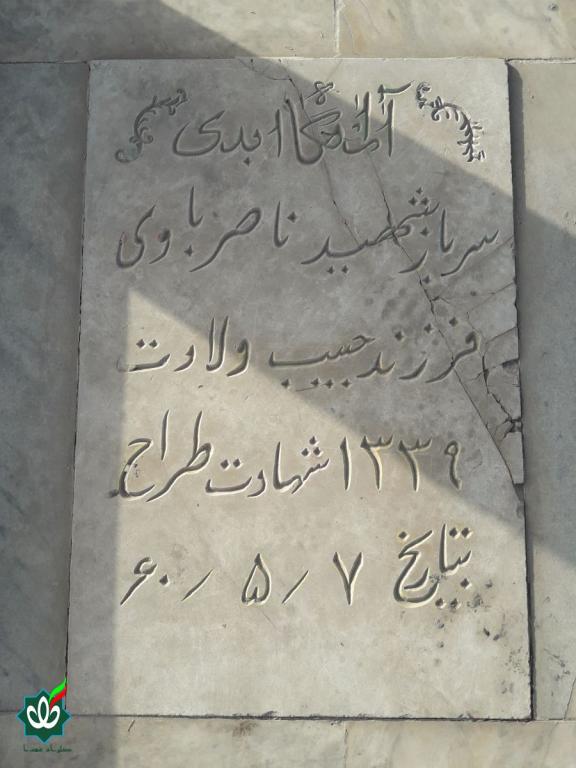 آرامگاه ابدی
سرباز شهید ناصر باوی
فرزند حبیب ولادت
۱۳۳۹ شهادت طراح
بتاریخ ۷ / ۵ / ۶۰